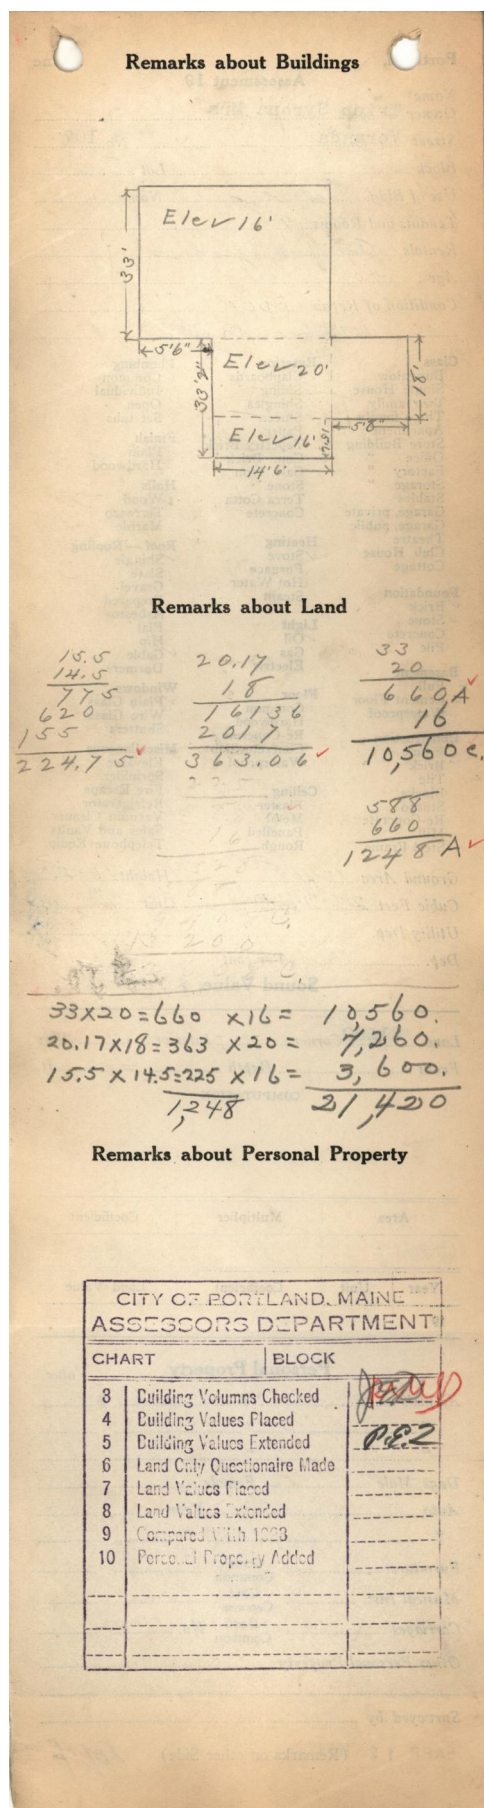 Remarks about Buildings
Elev 16'
33'
5'6"
Elev 20'
33'2"
18'
5'8"
Elev 16'
14'6"
Remarks about Land
15.5
14.5
775
620
155
224.75
20.17
18
16136
2017
363.06
33
20
660 A
16
10,560 c.
588
660
1248 A
33 x 20 = 660 x 16 = 10,560.
20.17 x 18 = 363 x 20 = 7,260.
15.5 x 14.5 = 225 x 16 = 3,600.
1,248 21,420
Remarks about Personal Property
CITY OF PORTLAND, MAINE
ASSESSORS DEPARTMENT
CHART BLOCK
3 Building Volumns Checked
4 Building Values Placed
5 Building Values Extended P.E.Z
6 Land Only Questionaire Made
7 Land Values Placed
8 Land Values Extended
9 Compared With 1923
10 Personal Property Added